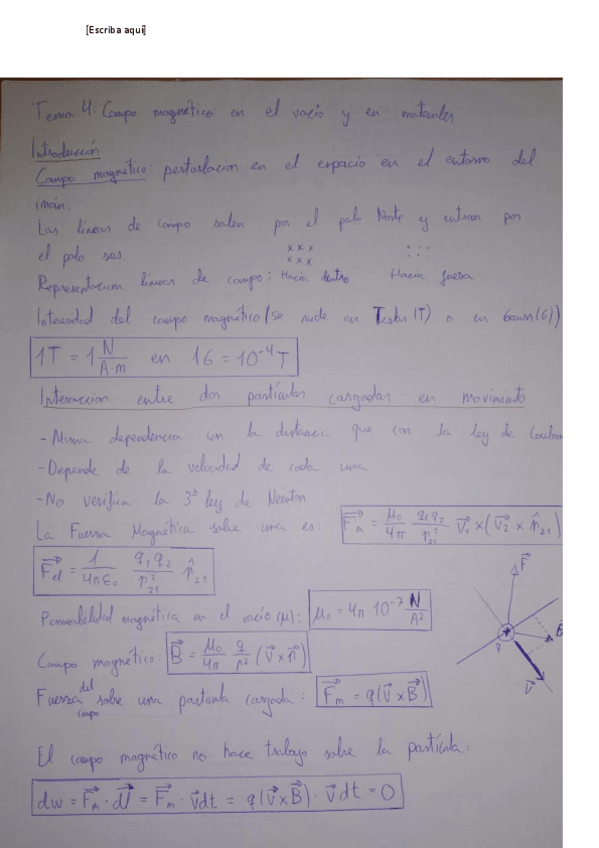 [Escriba aquí]
Tema 4: Campo magnético en el vacío y en materiales
Introducción
Campo magnético: perturbacion en el espacio en el entorno del
imán.
Las líneas de campo salen por el polo Norte y entran por
el polo sur.
x x x
x x x
Representacion lineas de campo: Hacia dentro Hacia fuera
Intensidad del campo magnético (se mide en Tesla (T) o en Gauss (G))
1T = 1 N/A·m en 1G = 10⁻⁴ T
Interaccion entre dos partículas cargadas en movimiento
- Misma dependencia con la distancia que con la ley de Coulom
- Depende de la velocidad de cada una
- No verifica la 3ª ley de Newton
La Fuerza Magnética sobre una es: F⃗m = μ₀/4π q₁q₂/r²₂₁ v⃗₁ × (v⃗₂ × r̂₂₁)
F⃗el = 1/4πε₀ q₁q₂/r²₂₁ r̂₂₁
Permeabilidad magnética en el vacío (μ): μ₀ = 4π · 10⁻⁷ N/A²
Campo magnético: B⃗ = μ₀/4π q/r² (v⃗ × r⃗)
Fuerza del campo sobre una particula cargada: F⃗m = q(v⃗ × B⃗)
F⃗
B
q
v⃗
El campo magnético no hace trabajo sobre la partícula:
dw = F⃗m · dl⃗ = F⃗m · v⃗dt = q(v⃗ × B⃗) · v⃗dt = 0